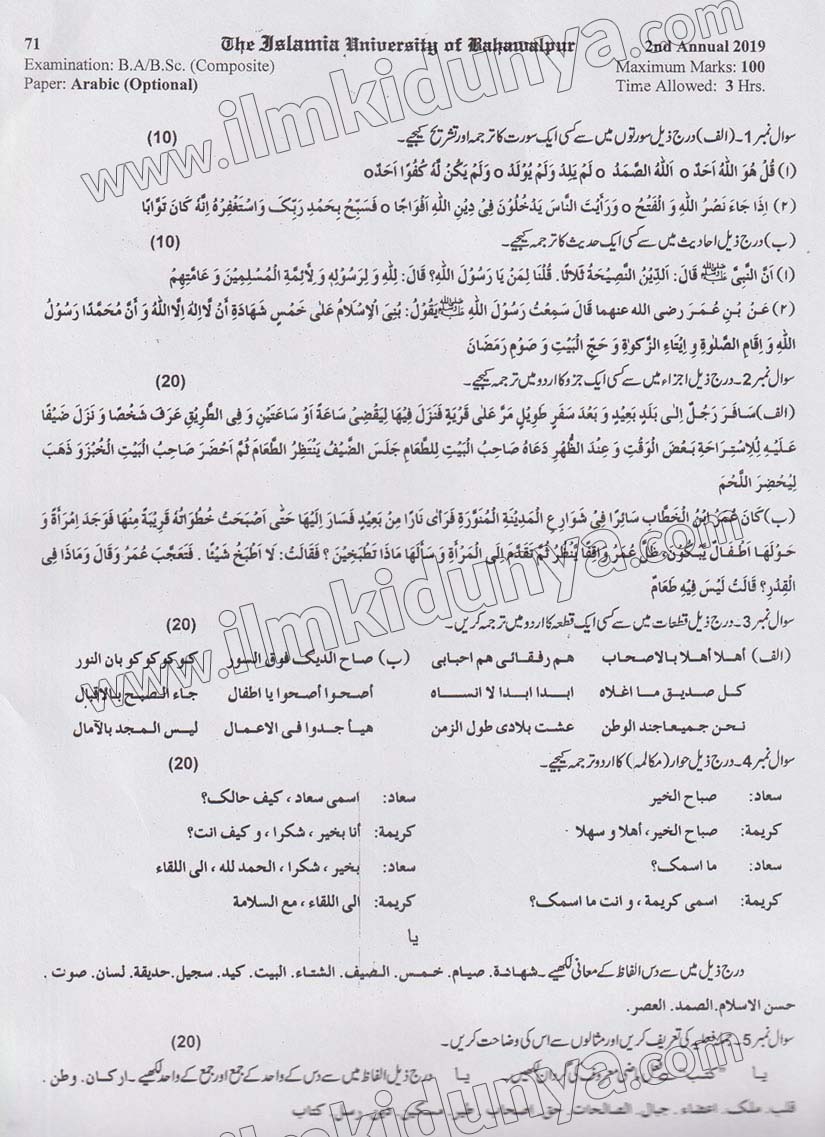 71
The Islamia University of Bahawalpur
2nd Annual 2019
Examination: B.A/B.Sc. (Composite)
Maximum Marks: 100
Paper: Arabic (Optional)
Time Allowed: 3 Hrs.
سوال نمبر 1۔ (الف) درج ذیل سورتوں میں سے کسی ایک سورت کا ترجمہ اور تشریح کیجیے۔ (10)
(۱) قُلْ هُوَ اللّٰهُ اَحَدٌ o اَللّٰهُ الصَّمَدُ o لَمْ يَلِدْ وَلَمْ يُوْلَدْ o وَلَمْ يَكُنْ لَّهٗ كُفُوًا اَحَدٌ o
(۲) اِذَا جَاءَ نَصْرُ اللّٰهِ وَ الْفَتْحُ o وَرَاَيْتَ النَّاسَ يَدْخُلُوْنَ فِيْ دِيْنِ اللّٰهِ اَفْوَاجًا o فَسَبِّحْ بِحَمْدِ رَبِّكَ وَ اسْتَغْفِرْهُ اِنَّهٗ كَانَ تَوَّابًا
(ب) درج ذیل احادیث میں سے کسی ایک حدیث کا ترجمہ کیجیے۔ (10)
(۱) اَنَّ النَّبِيَّ ﷺ قَالَ: اَلدِّيْنُ النَّصِيْحَةُ ثَلَاثًا. قُلْنَا لِمَنْ يَا رَسُوْلَ اللّٰهِ؟ قَالَ: لِلّٰهِ وَ لِرَسُوْلِهٖ وَ لِأَئِمَّةِ الْمُسْلِمِيْنَ وَ عَامَّتِهِمْ
(۲) عَنْ بْنِ عُمَرَ رضی الله عنهما قَالَ سَمِعْتُ رَسُوْلَ اللّٰهِ ﷺ يَقُوْلُ: بُنِيَ الْاِسْلَامُ عَلٰى خَمْسٍ شَهَادَةِ اَنْ لَّا اِلٰهَ اِلَّا اللّٰهُ وَ اَنَّ مُحَمَّدًا رَسُوْلُ
اللّٰهِ وَ اِقَامِ الصَّلٰوةِ وَ اِيْتَاءِ الزَّكٰوةِ وَ حَجِّ الْبَيْتِ وَ صَوْمِ رَمَضَانَ
سوال نمبر 2۔ درج ذیل اجزاء میں سے کسی ایک جزو کا اردو میں ترجمہ کیجیے۔ (20)
(الف) سَافَرَ رَجُلٌ اِلٰى بَلَدٍ بَعِيْدٍ وَ بَعْدَ سَفَرٍ طَوِيْلٍ مَرَّ عَلٰى قَرْيَةٍ فَنَزَلَ فِيْهَا لِيَقْضِيَ سَاعَةً اَوْ سَاعَتَيْنِ وَ فِي الطَّرِيْقِ عَرَفَ شَخْصًا وَ نَزَلَ ضَيْفًا
عَلَيْهِ لِلْاِسْتِرَاحَةِ بَعْضَ الْوَقْتِ وَ عِنْدَ الظُّهْرِ دَعَاهُ صَاحِبُ الْبَيْتِ لِلطَّعَامِ جَلَسَ الضَّيْفُ يَنْتَظِرُ الطَّعَامَ ثُمَّ اَحْضَرَ صَاحِبُ الْبَيْتِ الْخُبْزَ وَ ذَهَبَ
لِيُحْضِرَ اللَّحْمَ
(ب) كَانَ عُمَرُ ابْنُ الْخَطَّابِ سَائِرًا فِيْ شَوَارِعِ الْمَدِيْنَةِ الْمُنَوَّرَةِ فَرَأٰى نَارًا مِنْ بَعِيْدٍ فَسَارَ اِلَيْهَا حَتّٰى اَصْبَحَتْ خُطُوَاتُهٗ قَرِيْبَةً مِنْهَا فَوَجَدَ اِمْرَأَةً وَ
حَوْلَهَا اَطْفَالٌ يَبْكُوْنَ، ظَلَّ عُمَرُ وَاقِفًا يَنْظُرُ ثُمَّ تَقَدَّمَ اِلَى الْمَرْأَةِ وَ سَأَلَهَا مَاذَا تَطْبَخِيْنَ؟ فَقَالَتْ: لَا اَطْبَخُ شَيْئًا. فَتَعَجَّبَ عُمَرُ وَقَالَ وَمَاذَا فِي
الْقِدْرِ؟ قَالَتْ لَيْسَ فِيْهِ طَعَامٌ
سوال نمبر 3۔ درج ذیل قطعات میں سے کسی ایک قطعہ کا اردو میں ترجمہ کریں۔ (20)
(الف) أهلا أهلا بالاصحاب هم رفقائى هم احبابى (ب) صاح الديك فوق السور كو كو كو كو بان النور
كل صديق ما اغلاه ابدا ابدا لا انساه أصحوا أصحوا يا اطفال جاء الصبح بالاقبال
نحن جميعا جند الوطن عشت بلادى طول الزمن هيأ جدوا فى الاعمال ليس المجد بالآمال
سوال نمبر 4۔ درج ذیل حوار (مکالمہ) کا اردو ترجمہ کیجیے۔ (20)
سعاد: صباح الخير سعاد: اسمى سعاد، كيف حالك؟
كريمة: صباح الخير، أهلا و سهلا كريمة: أنا بخير، شكرا، و كيف انت؟
سعاد: ما اسمك؟ سعاد: بخير، شكرا، الحمد لله، الى اللقاء
كريمة: اسمى كريمة، و انت ما اسمك؟ كريمة: الى اللقاء، مع السلامة
یا
درج ذیل میں سے دس الفاظ کے معانی لکھیے۔ شهادة. صيام. خمس. الصيف. الشتاء. البيت. كيد. سجيل. حديقة. لسان. صوت.
حسن الاسلام. الصمد. العصر.
سوال نمبر 5۔ جملہ فعلیہ کی تعریف کریں اور مثالوں سے اس کی وضاحت کریں۔ (20)
یا کتب سے فعل ماضی معروف کی گردان لکھیں۔ یا درج ذیل الفاظ میں سے دس کے واحد کے جمع اور جمع کے واحد لکھیے۔ ارکان. وطن.
قلب. ملک. اعضاء. جبال. الصالحات. حق. اصحاب. طير. مسكين. رسل. كتاب
www.ilmkidunya.com
www.ilmkidunya.com
www.ilmkidunya.com